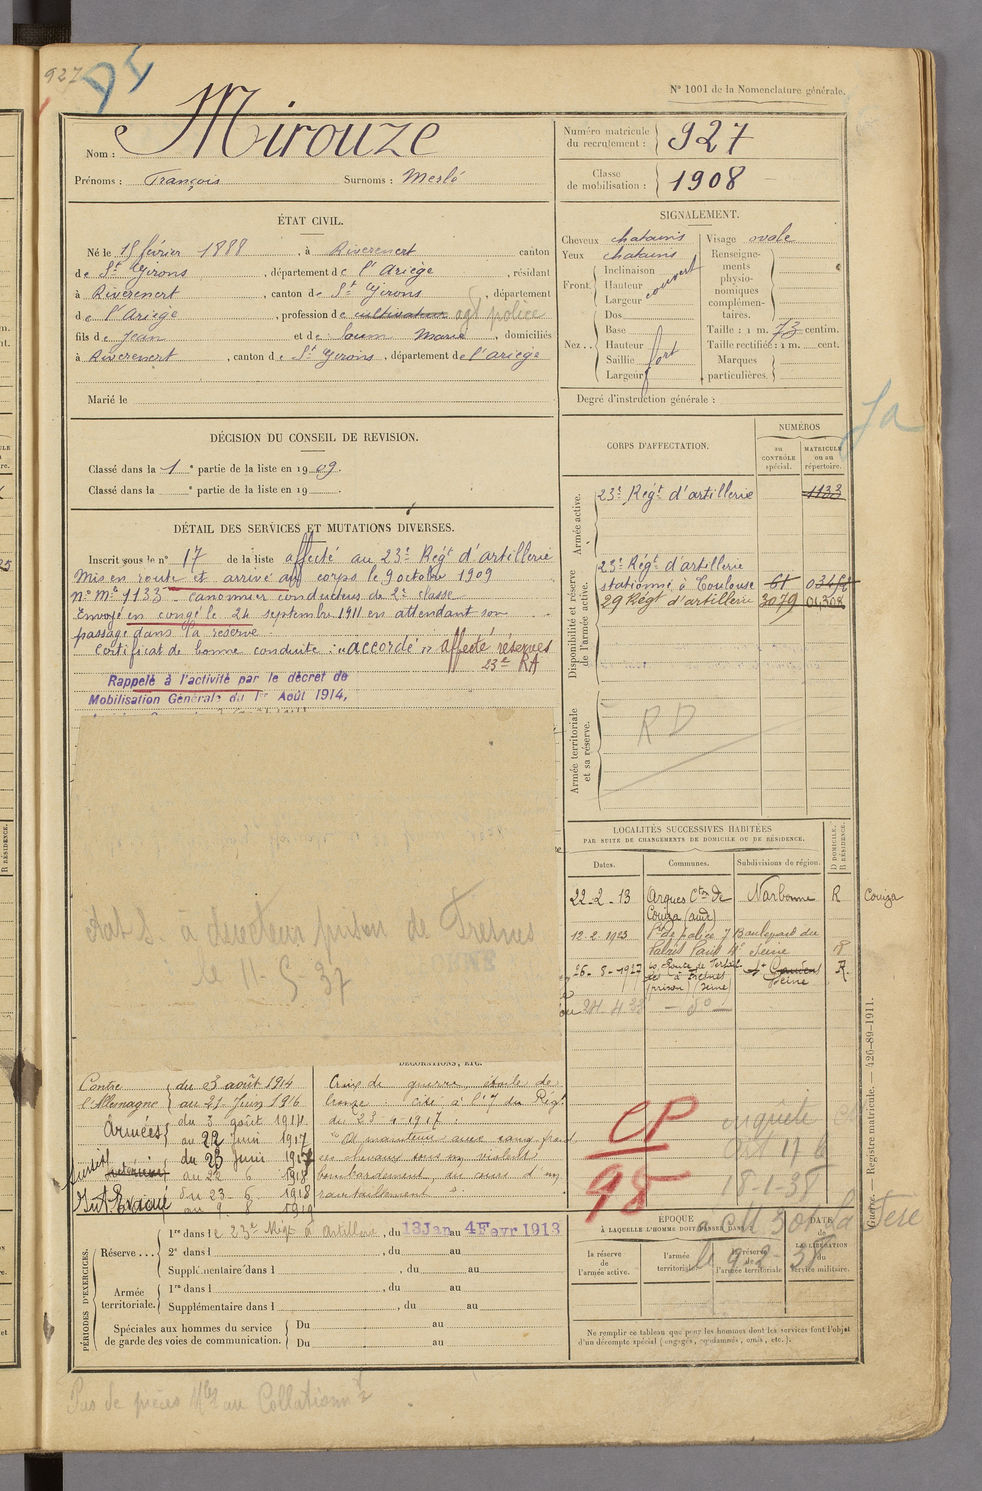 927
N° 1001 de la Nomenclature générale.
Nom : Mirouze
Prénoms : François Surnoms : Merlé
Numéro matricule du recrutement : 927
Classe de mobilisation : 1908
ÉTAT CIVIL.
Né le 15 février 1888, à Riverenert canton
de St Girons, département de l'Ariège, résidant
à Riverenert, canton de St Girons, département
de l'Ariège, profession de cultivateur agt police
fils de Jean et de Soum Marie, domiciliés
à Riverenert, canton de St Girons, département de l'ariège
Marié le
SIGNALEMENT.
Cheveux chatains
Yeux chatains
Front. Inclinaison Hauteur Largeur couvert
Nez.. Dos Base Hauteur Saillie Largeur fort
Visage ovale
Renseignements physionomiques complémentaires.
Taille : 1 m. 73 centim.
Taille rectifiée : 1 m. cent.
Marques particulières.
Degré d'instruction générale :
DÉCISION DU CONSEIL DE REVISION.
Classé dans la 1e partie de la liste en 1909.
Classé dans la e partie de la liste en 19 .
DÉTAIL DES SERVICES ET MUTATIONS DIVERSES.
Inscrit sous le n° 17 de la liste affecté au 23e Régt d'artillerie
Mis en route et arrivé au corps le 9 octobre 1909
n° Mle 1133 - canonnier conducteur de 2e classe
Envoyé en congé le 24 septembre 1911 en attendant son
passage dans la réserve.
Certificat de bonne conduite : "accordé" affecté réserves
23e RA
Rappelé à l'activité par le décret de
Mobilisation Générale du 1er Août 1914,
à directeur prison de Fresnes
le 11-5-37
CORPS D'AFFECTATION.
NUMÉROS
au CONTRÔLE spécial.
MATRICULE ou au répertoire.
Armée active.
23e Régt d'artillerie 1133
Disponibilité et réserve de l'armée active.
23e Régt d'artillerie
stationné à Toulouse 61
29 Régt d'artillerie 3079
Armée territoriale et sa réserve.
RD
LOCALITÉS SUCCESSIVES HABITÉES
PAR SUITE DE CHANGEMENTS DE DOMICILE OU DE RÉSIDENCE.
Dates. Communes. Subdivisions de région. D DOMICILE. R RÉSIDENCE.
22-2-13 Arques Cton de Couiza (aude) Narbonne R Couiza
12-2-1923 Pde de police 7 Boulevard du Palais Paris 4e Seine R
26-8-1927 à Fresnes (prison) (Seine) Seine R.
- do -
DÉCORATIONS, ETC.
Contre l'Allemagne du 3 août 1914
au 21 Juin 1916
Armées du 3 août 1914
au 22 Juin 1917
Intérieur du 23 Juin 1917
au 22 6 1918
du 23 - 6 - 1918
au 9. 8 1919
Croix de guerre, étoile de
bronze : cité à l'O du Régt
du 23 4 1917 :
"A maintenu avec sang froid
ses chevaux sous un violent
bombardement au cours d'un
ravitaillement".
CP
98
enquête
18-1-38
le 9 2 38
La Fère
PÉRIODES D'EXERCICES.
Réserve... 1re dans le 23e Régt d'Artillerie, du 13 Jan au 4 Fevr 1913
2e dans l , du au
Supplémentaire dans l , du au
Armée territoriale. 1re dans l , du au
Supplémentaire dans l , du au
Spéciales aux hommes du service de garde des voies de communication. Du au
Du au
ÉPOQUE
À LAQUELLE L'HOMME DOIT PASSER DANS :
la réserve de l'armée active.
l'armée territoriale.
la réserve de l'armée territoriale
DATE de LA LIBÉRATION du service militaire.
Ne remplir ce tableau que pour les hommes dont les services font l'objet
d'un décompte spécial (engagés, condamnés, omis, etc.).
Guerre. — Registre matricule. — 426-89-1911.
Pas de pièces Mles au